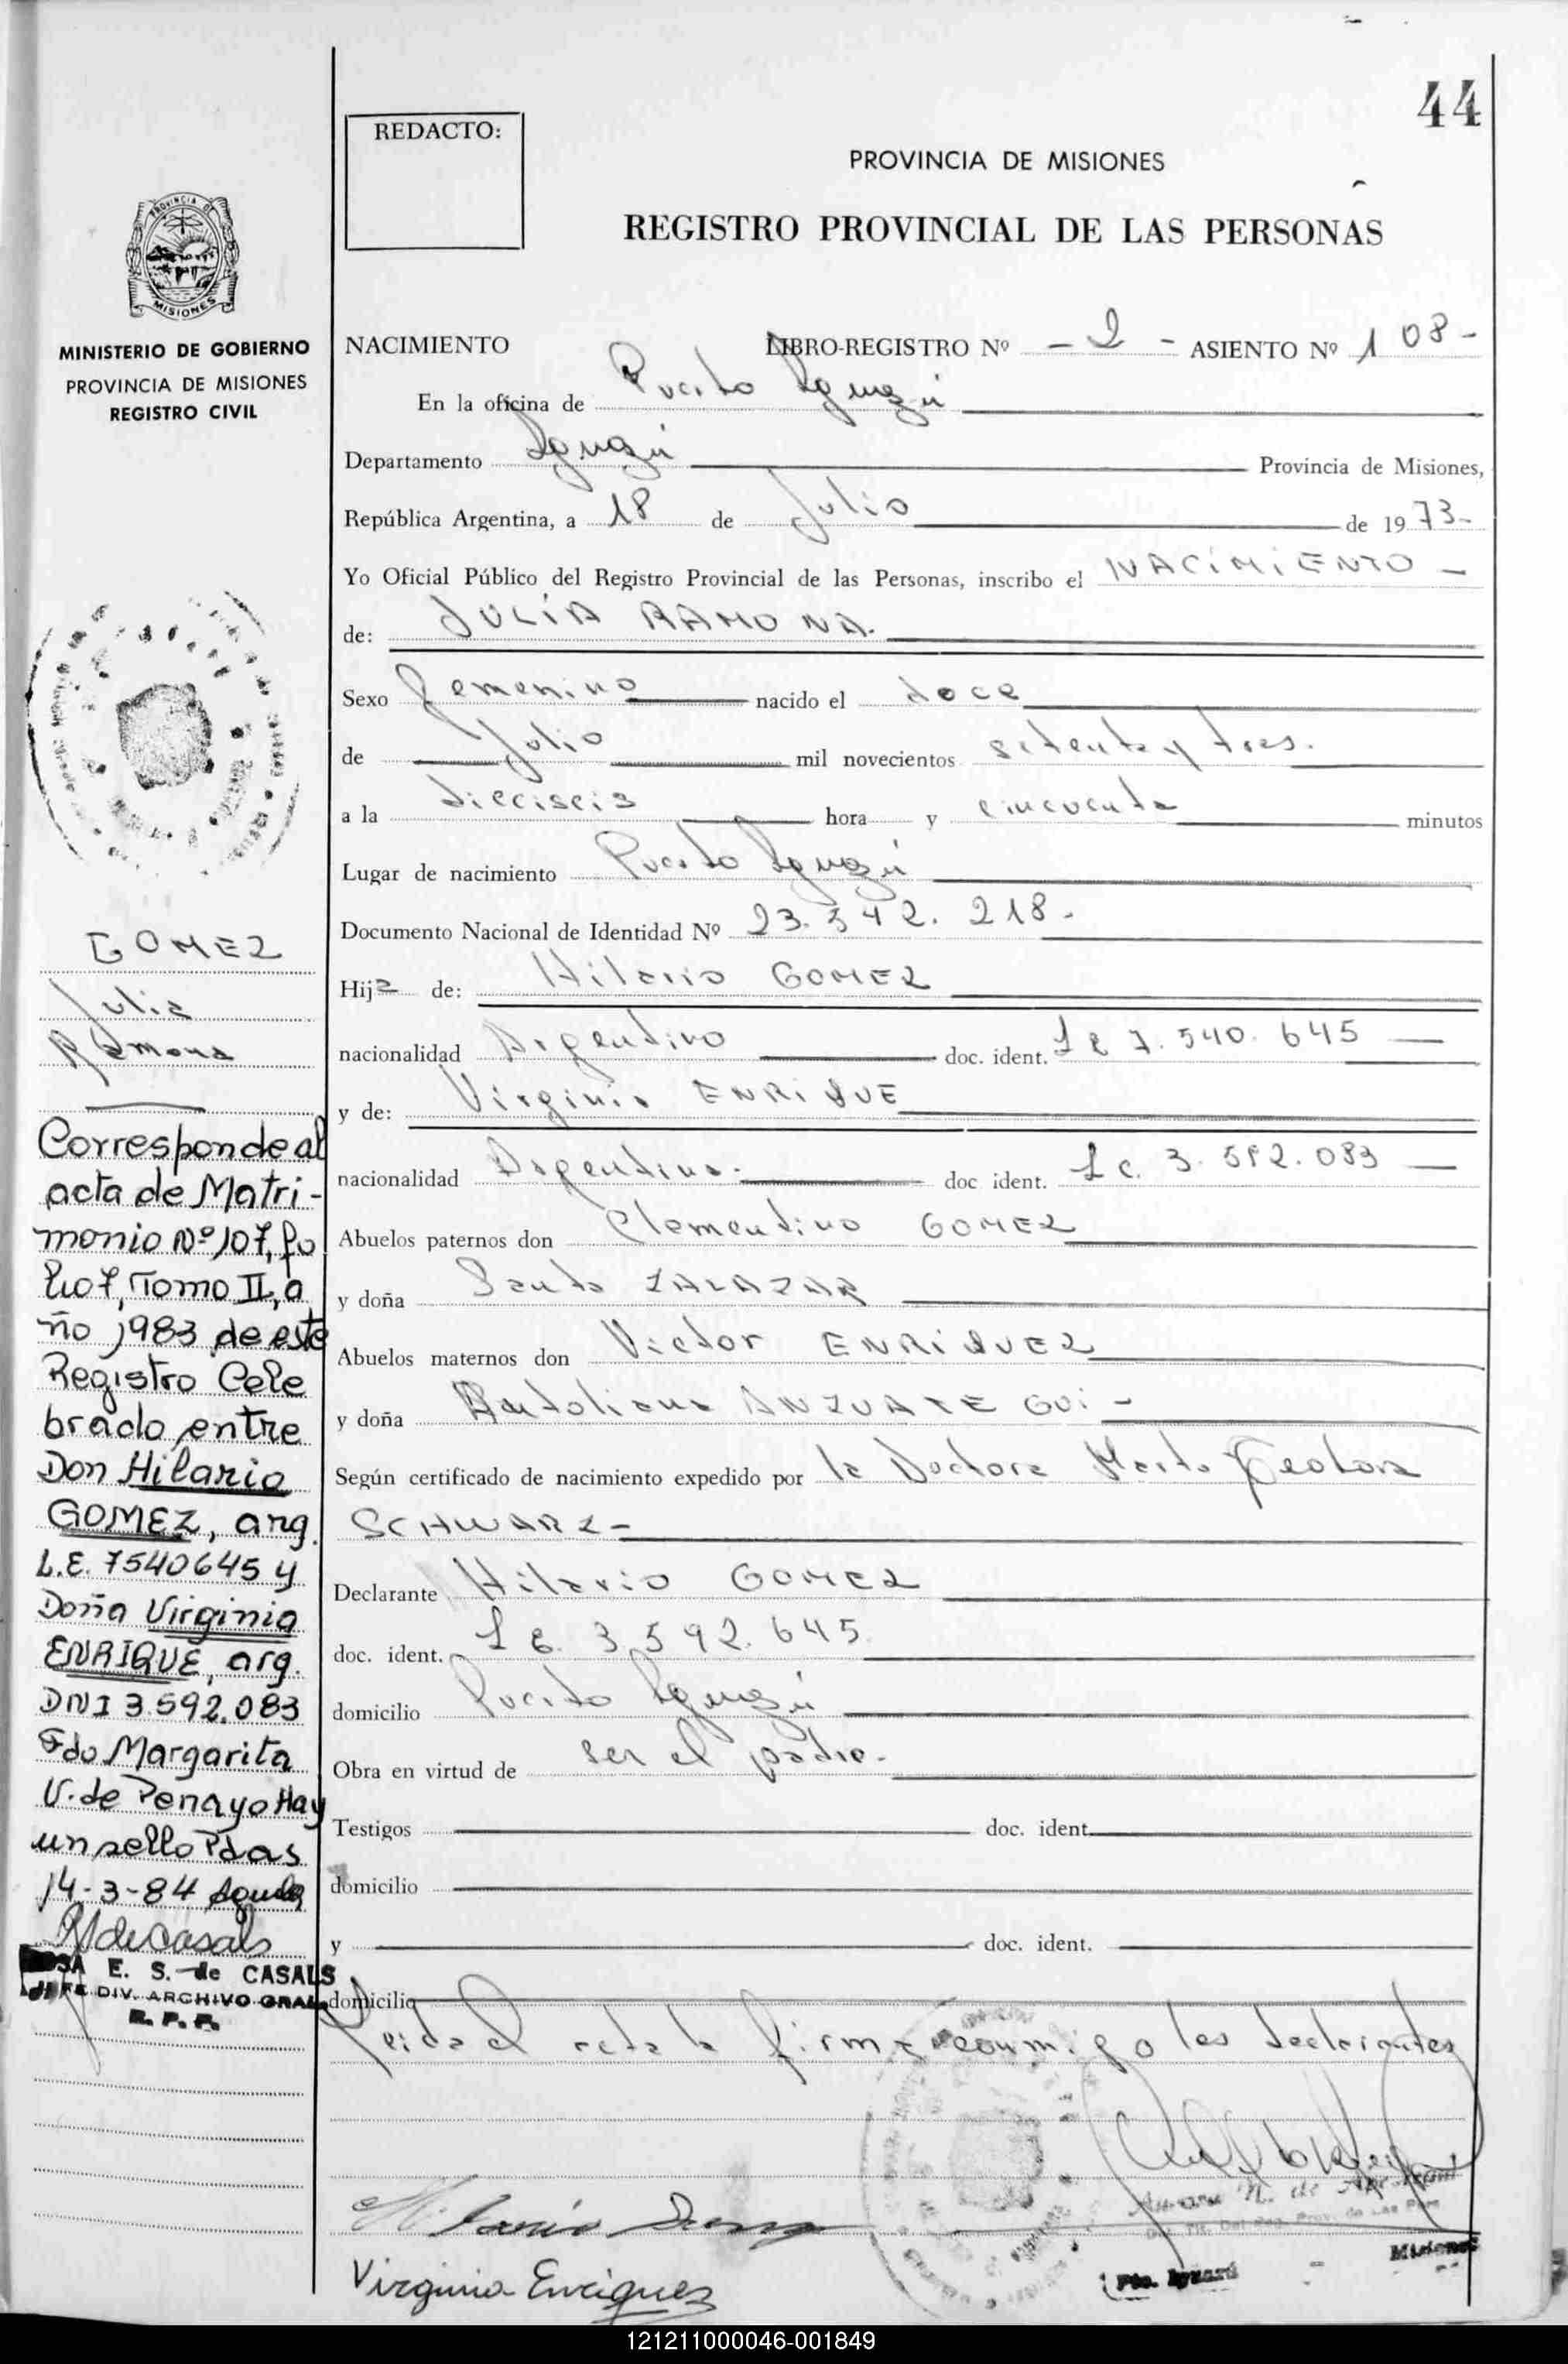 44
REDACTO:
PROVINCIA DE MISIONES
REGISTRO PROVINCIAL DE LAS PERSONAS
PROVINCIA DE
MISIONES
MINISTERIO DE GOBIERNO
PROVINCIA DE MISIONES
REGISTRO CIVIL
NACIMIENTO LIBRO-REGISTRO Nº - 2 - ASIENTO Nº 108-
En la oficina de Puerto Iguazú
Departamento Iguazú Provincia de Misiones,
República Argentina, a 18 de Julio de 1973-
Yo Oficial Público del Registro Provincial de las Personas, inscribo el NACIMIENTO -
de: JULIA RAMONA.
Sexo Femenino nacido el doce
de Julio mil novecientos setenta y tres.
a la dieciseis hora y cincuenta minutos
Lugar de nacimiento Puerto Iguazú
Documento Nacional de Identidad Nº 23.542.218-
Hija de: Hilario GOMEZ
nacionalidad Argentino doc. ident. L E 7.540.645
y de: Virginia ENRIQUE
nacionalidad Argentina. doc ident. L c. 3.592.083
Abuelos paternos don Clementino GOMEZ
y doña Santa ZALAZAR
Abuelos maternos don Victor ENRIQUEZ
y doña ANZUATEGUI -
Según certificado de nacimiento expedido por la Doctora Marta Teodora
SCHWARZ-
Declarante Hilario GOMEZ
doc. ident. L E. 3.592.645.
domicilio Puerto Iguazú
Obra en virtud de ser el padre.
Testigos doc. ident.
domicilio
y doc. ident.
domicilio
Leida el acta la firma conmigo los declarantes
Virginia Enriquez
Pto. Iguazú - Misiones
GOMEZ
Julia
Ramona
Corresponde al
acta de Matri-
monio Nº 107, fo
lio 7, Tomo II, a
ño 1983 de este
Registro Cele
brado entre
Don Hilario
GOMEZ, arg.
L.E. 7540645 y
Doña Virginia
ENRIQUE, arg.
DNI 3.592.083
Fdo Margarita
V. de Penayo Hay
un sello Pdas
14-3-84
R S de Casals
E. S. de CASALS
JEFE DIV. ARCHIVO GRAL.
R. P. P.
121211000046-001849